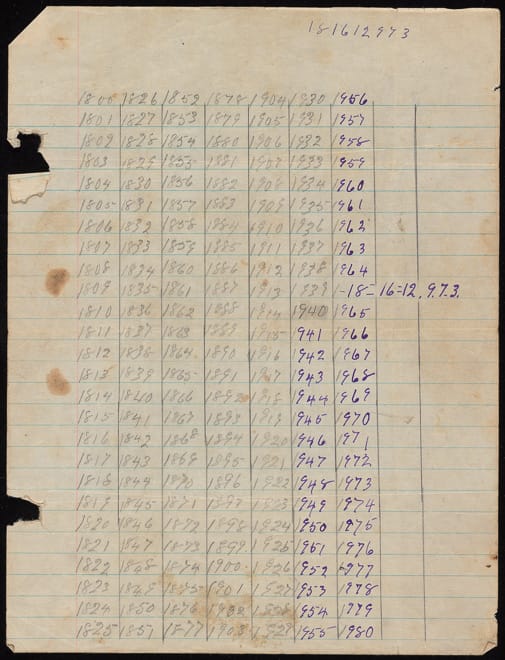 181612973
1800 1826 1852 1878 1904 1930 1956
1801 1827 1853 1879 1905 1931 1957
1802 1828 1854 1880 1906 1932 1958
1803 1829 1855 1881 1907 1933 1959
1804 1830 1856 1882 1908 1934 1960
1805 1831 1857 1883 1909 1935 1961
1806 1832 1858 1884 1910 1936 1962
1807 1833 1859 1885 1911 1937 1963
1808 1834 1860 1886 1912 1938 1964
1809 1835 1861 1887 1913 1939 1-18-16=12,9.7.3.
1810 1836 1862 1888 1914 1940 1965
1811 1837 1863 1889 1915 1941 1966
1812 1838 1864 1890 1916 1942 1967
1813 1839 1865 1891 1917 1943 1968
1814 1840 1866 1892 1918 1944 1969
1815 1841 1867 1893 1919 1945 1970
1816 1842 1868 1894 1920 1946 1971
1817 1843 1869 1895 1921 1947 1972
1818 1844 1870 1896 1922 1948 1973
1819 1845 1871 1897 1923 1949 1974
1820 1846 1872 1898 1924 1950 1975
1821 1847 1873 1899 1925 1951 1976
1822 1848 1874 1900 1926 1952 1977
1823 1849 1875 1901 1927 1953 1978
1824 1850 1876 1902 1928 1954 1979
1825 1851 1877 1903 1929 1955 1980